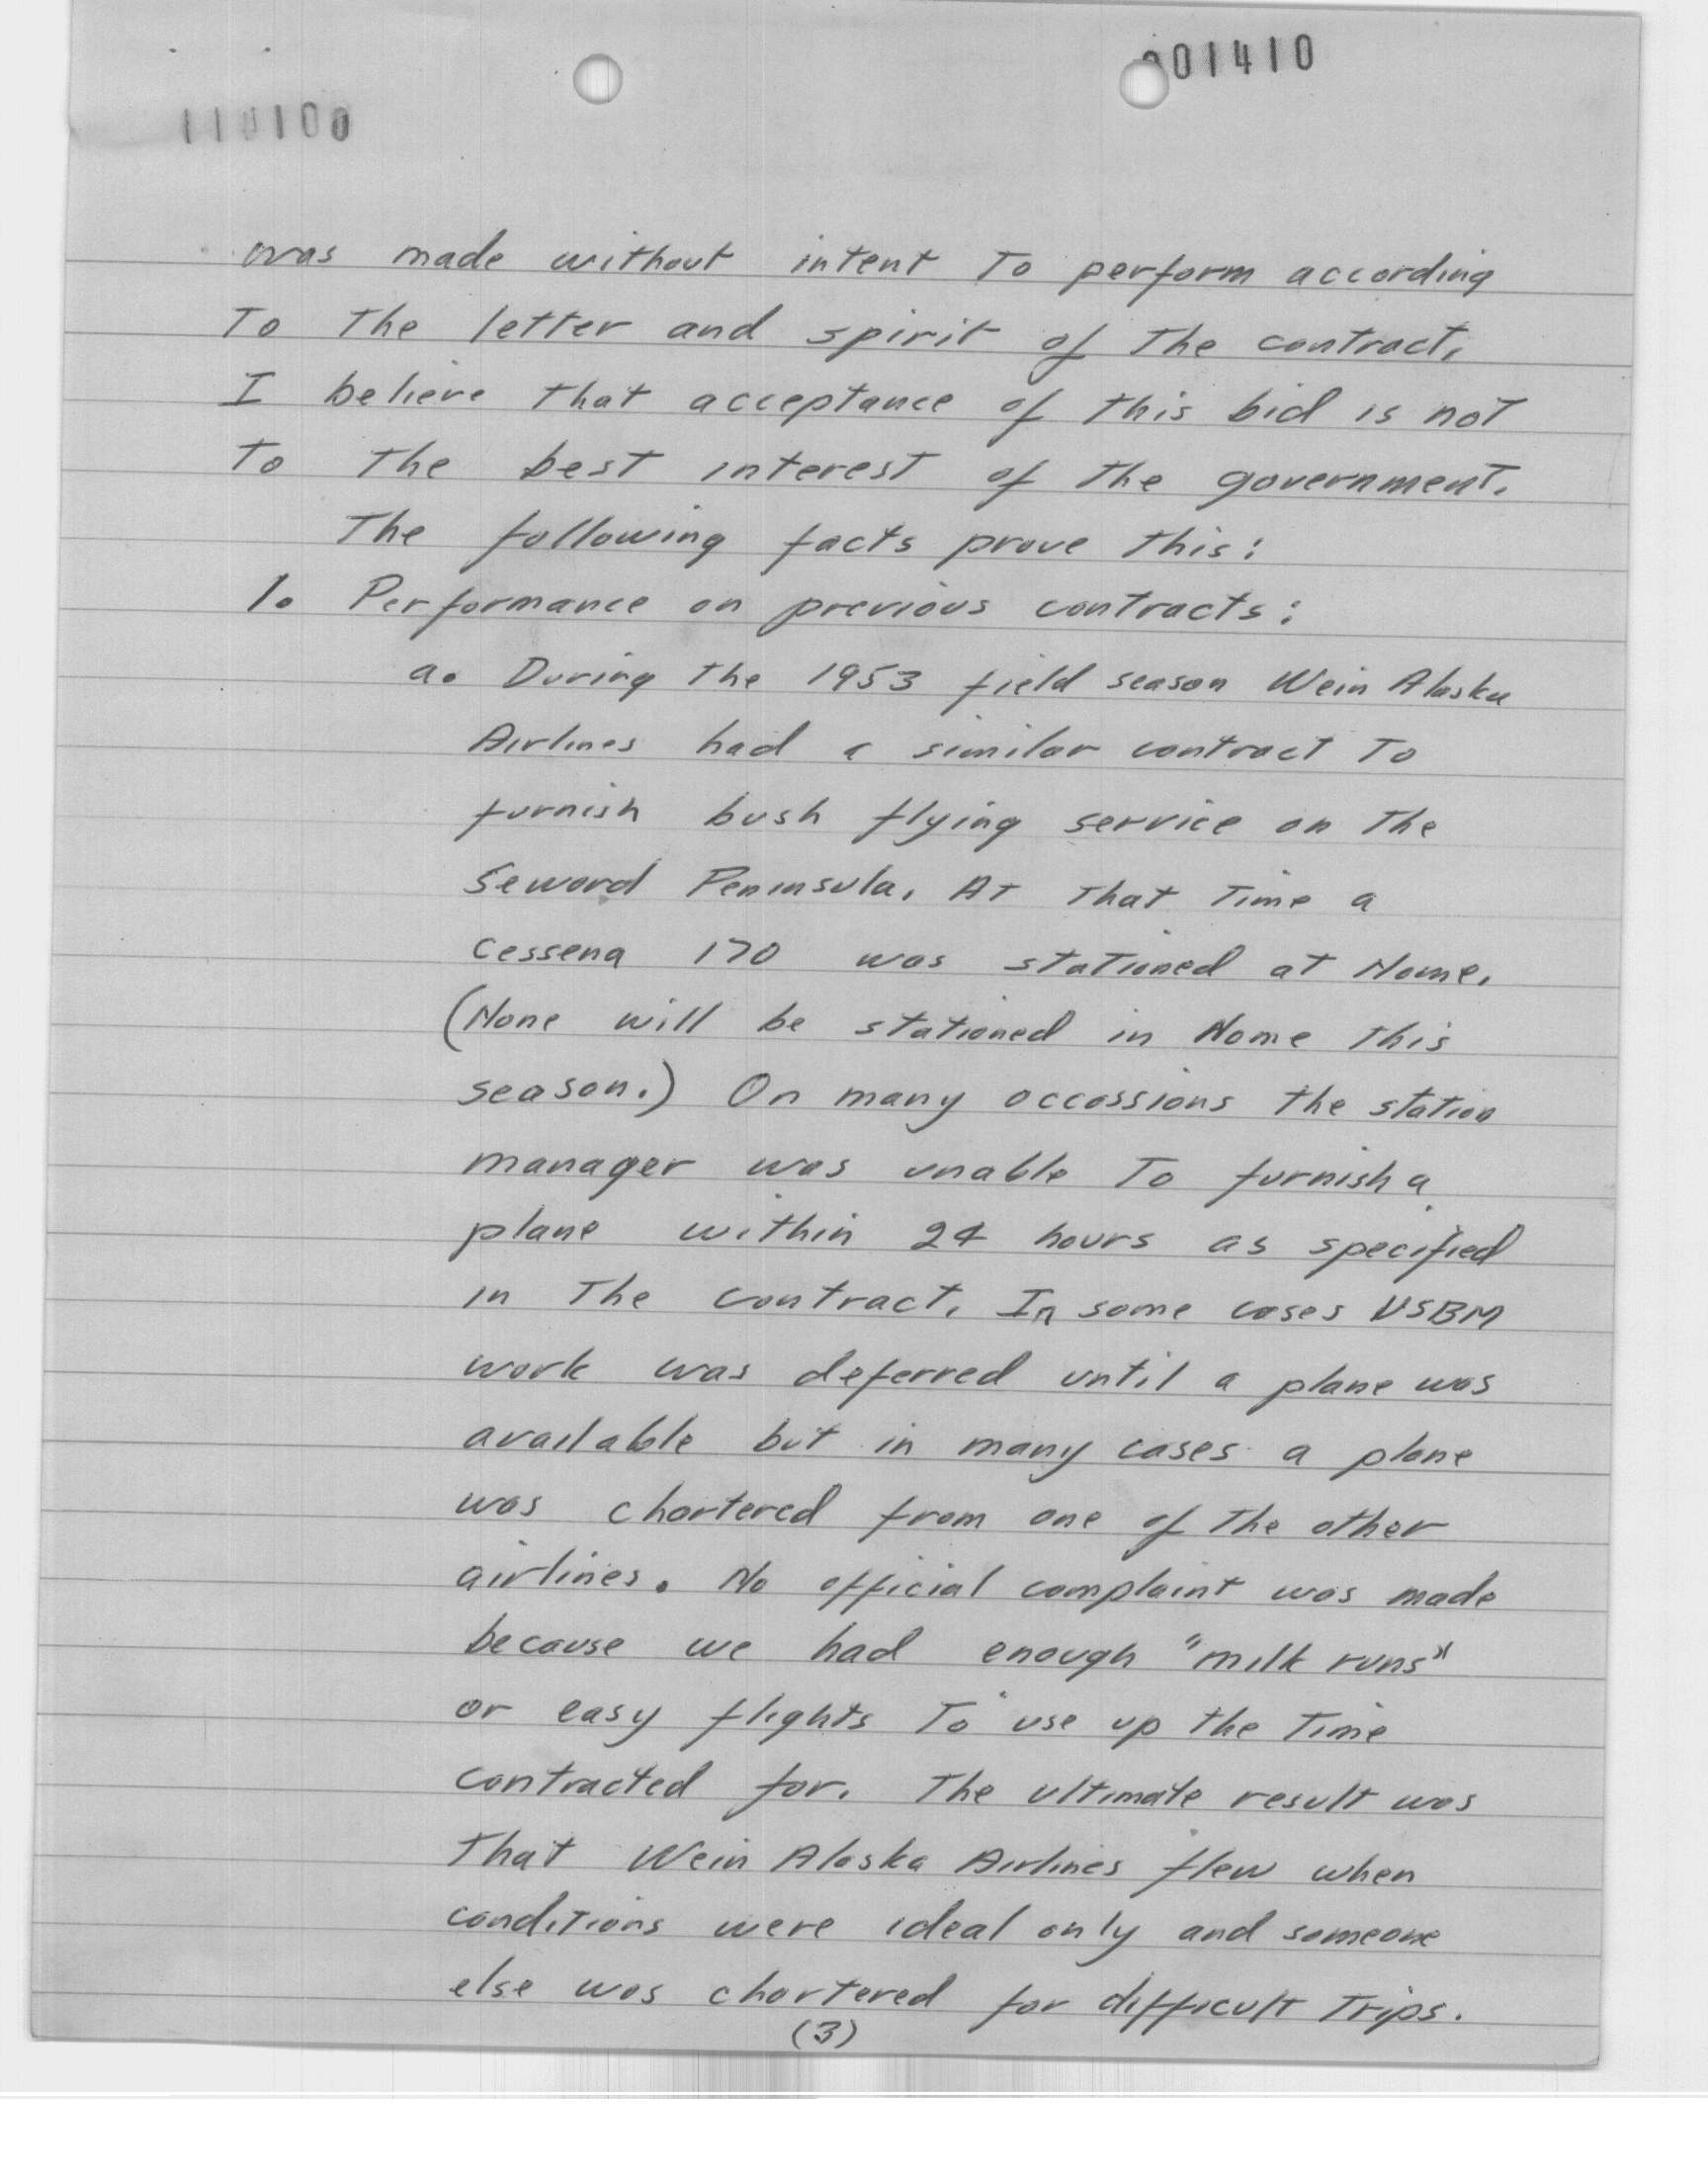 001410
110100
was made without intent To perform according
To The letter and spirit of The contract.
I believe that acceptance of this bid is not
To The best interest of the government.
The following facts prove this:
1. Performance on previous contracts:
a. During the 1953 field season Wein Alaska
Airlines had a similar contract To
furnish bush flying service on The
Seward Peninsula. At That Time a
Cessena 170 was stationed at Nome.
(None will be stationed in Nome this
season.) On many occassions the station
manager was unable To furnish a
plane within 24 hours as specified
in The contract. In some cases USBM
work was deferred until a plane was
available but in many cases a plane
was chartered from one of the other
airlines. No official complaint was made
because we had enough "milk runs"
or easy flights To use up the Time
contracted for. The ultimate result was
That Wein Alaska Airlines flew when
conditions were ideal only and someone
else was chartered for difficult Trips.
(3)